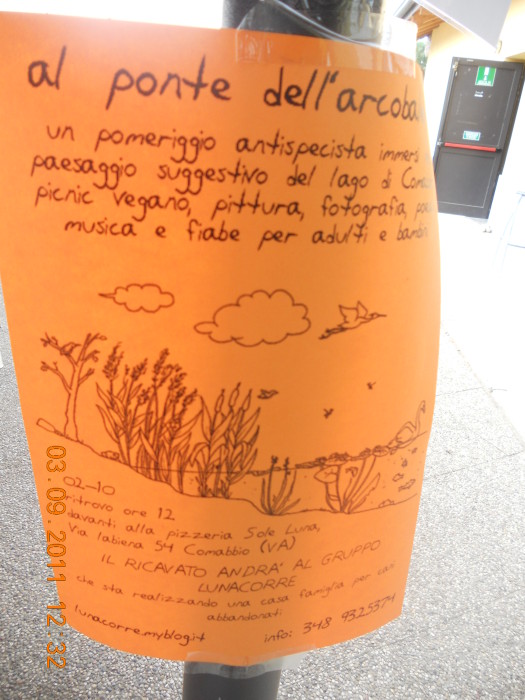 al ponte dell'arcoba
un pomeriggio antispecista immers
paesaggio suggestivo del lago di Com
picnic vegano, pittura, fotografia, poe
musica e fiabe per adulti e bambi
02-10
ritrovo ore 12
davanti alla pizzeria Sole Luna,
Via labiena 54 Comabbio (VA)
IL RICAVATO ANDRA' AL GRUPPO
LUNACORRE
che sta realizzando una casa famiglia per cani
abbandonati
lunacorre.myblog.it
info: 348 9325374
03.09.2011 12:32